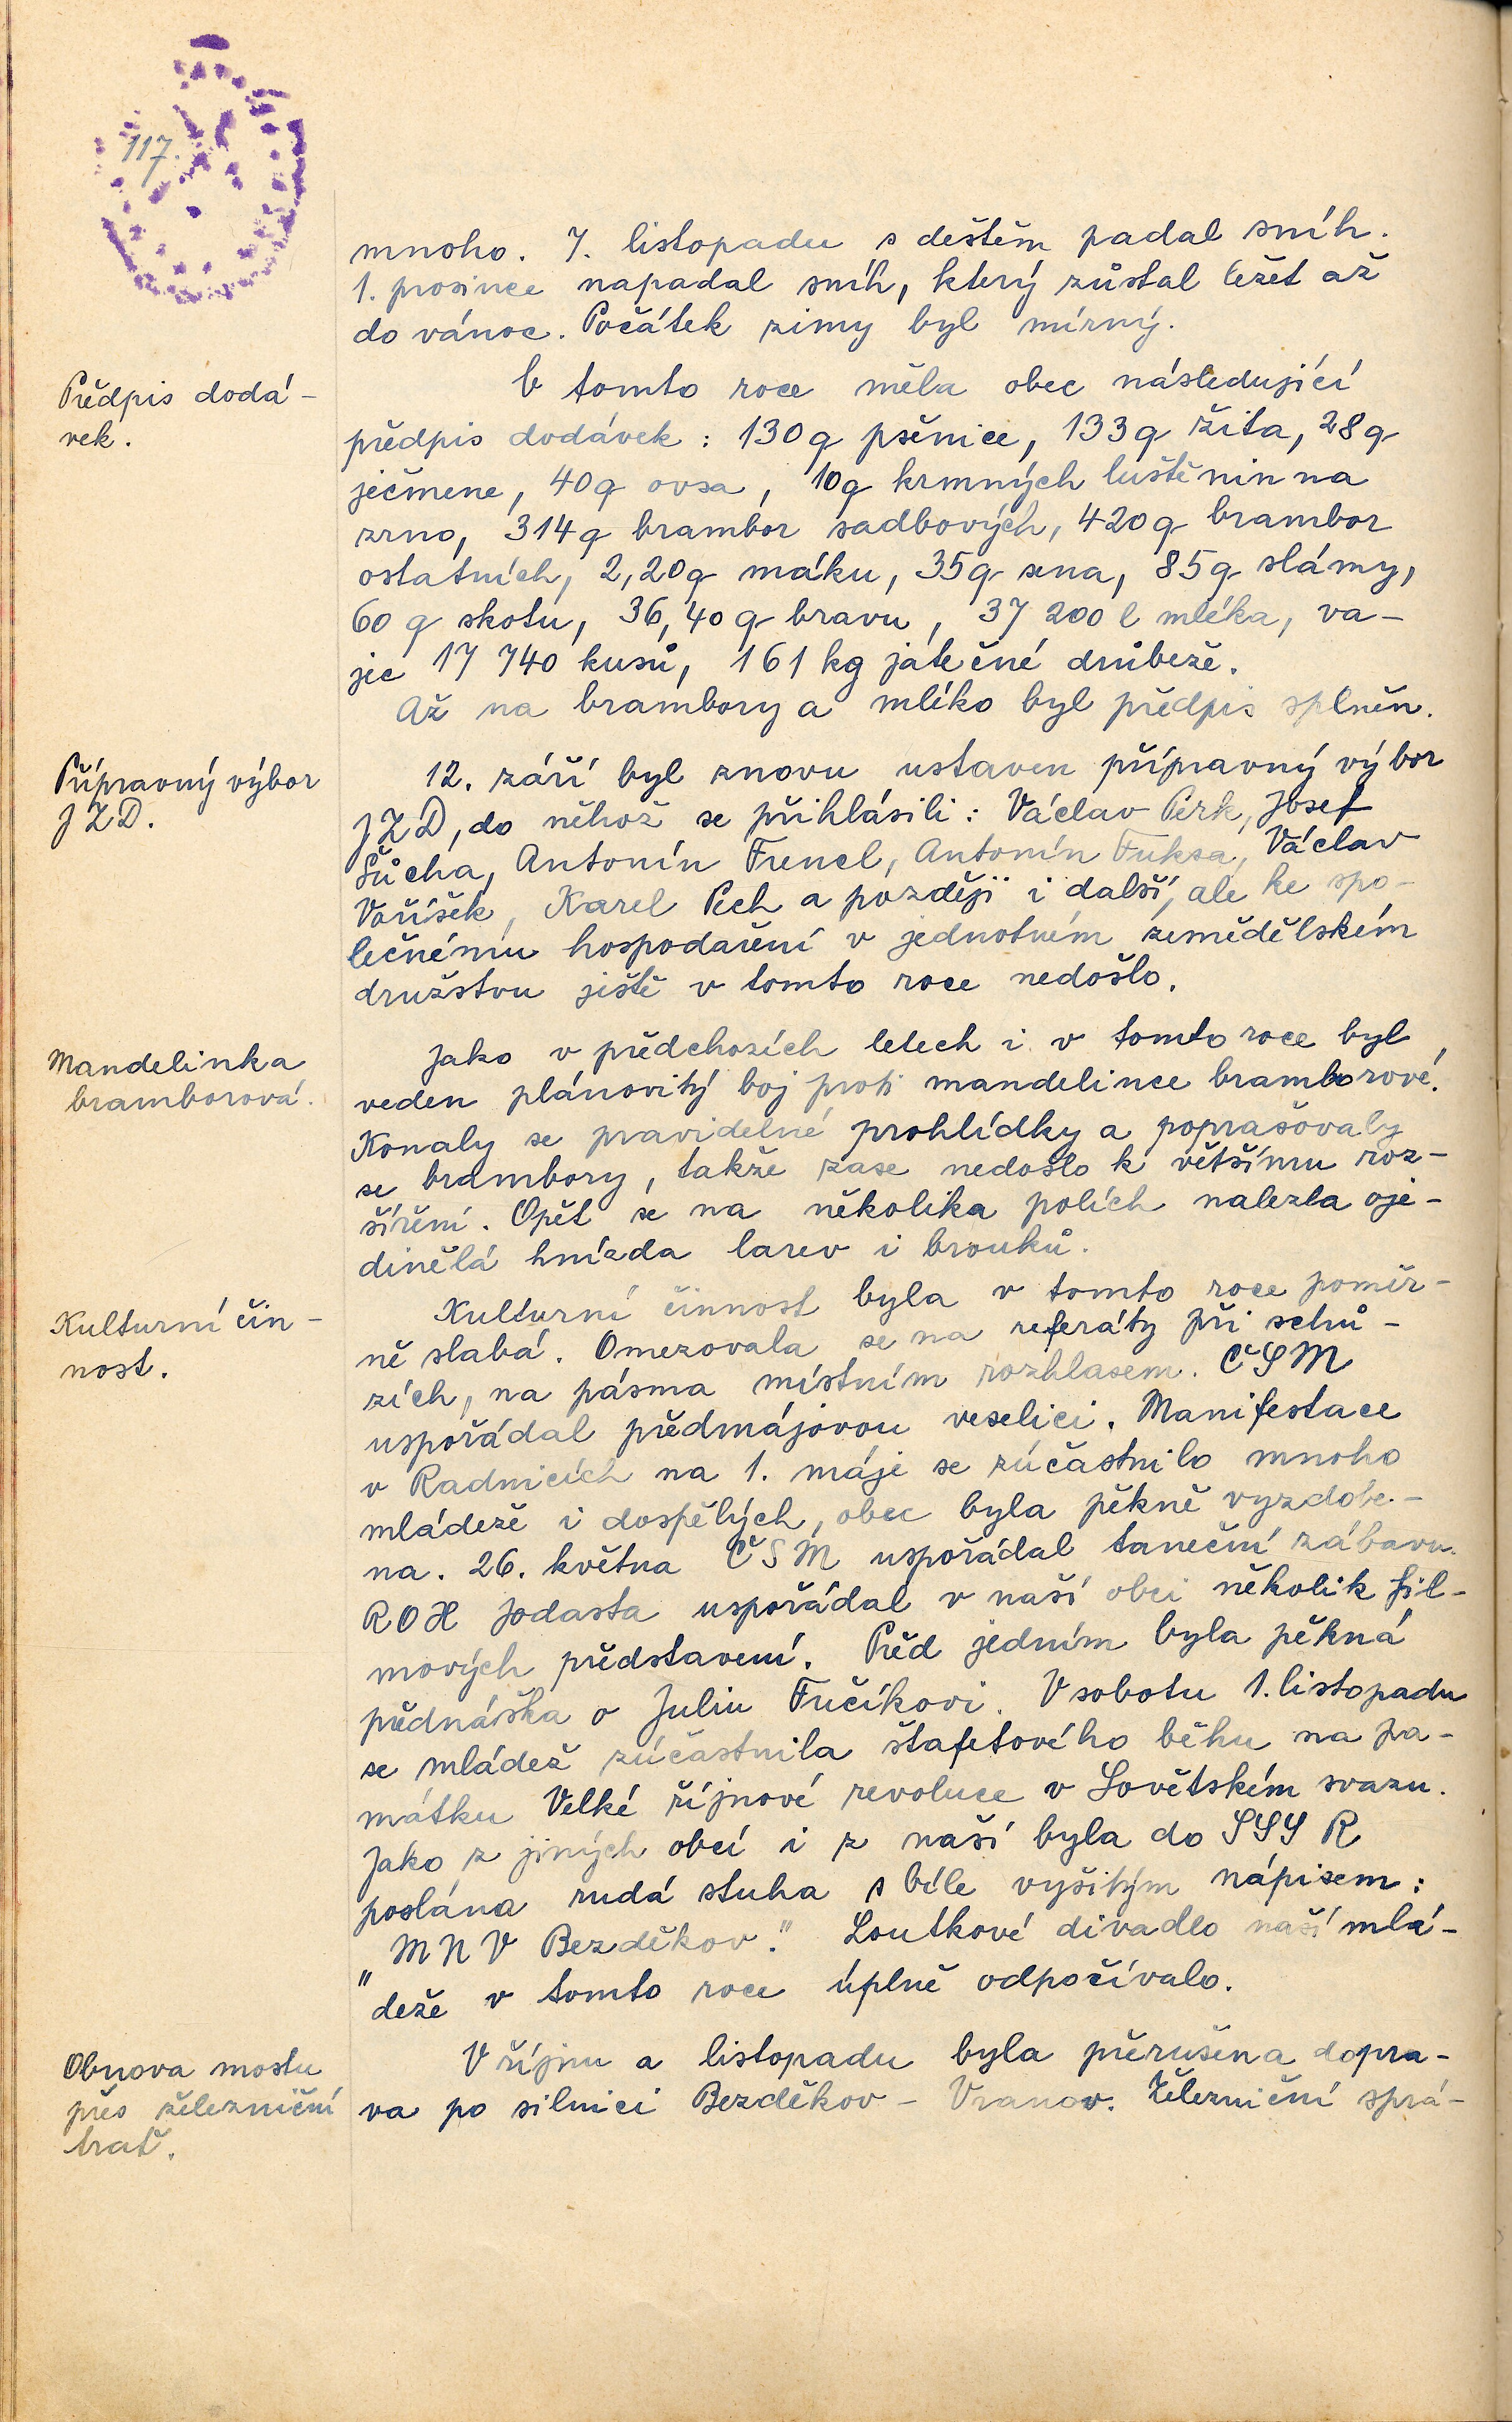 117.
mnoho. 7. listopadu s deštěm padal sníh.
1. prosince napadal sníh, který zůstal ležet až
do vánoc. Počátek zimy byl mírný.
Předpis dodá-
vek.
V tomto roce měla obec následující
předpis dodávek: 130 q pšenice, 133 q žita, 28 q
ječmene, 40 q ovsa, 10 q krmných luštěnin na
zrno, 314 q brambor sadbových, 420 q brambor
ostatních, 2,20 q máku, 35 q sena, 85 q slámy,
60 q skotu, 36,40 q bravu, 37 200 l mléka, va-
jec 17 740 kusů, 161 kg jatečné drůbeže.
Až na brambory a mlíko byl předpis splněn.
Přípravný výbor
JZD.
12. září byl znovu ustaven přípravný výbor
JZD, do něhož se přihlásili: Václav Perk, Josef
Šůcha, Antonín Frencl, Antonín Fuksa, Václav
Voříšek, Karel Pech a později i další, ale ke spo-
lečnému hospodaření v jednotném zemědělském
družstvu ještě v tomto roce nedošlo.
Mandelinka
bramborová.
Jako v předchozích letech i v tomto roce byl
veden plánovitý boj proti mandelince bramborové.
Konaly se pravidelné prohlídky a poprašovaly
se brambory, takže zase nedošlo k většímu roz-
šíření. Opět se na několika polích nalezla oje-
dinělá hnízda larev i brouků.
Kulturní čin-
nost.
Kulturní činnost byla v tomto roce poměr-
ně slabá. Omezovala se na referáty při schů-
zích, na pásma místním rozhlasem. ČSM
uspořádal předmájovou veselici. Manifestace
v Radnicích na 1. máje se zúčastnilo mnoho
mládeže i dospělých, obec byla pěkně vyzdobe-
na. 26. května ČSM uspořádal taneční zábavu.
ROH Jodasta uspořádal v naší obci několik fil-
mových představení. Před jedním byla pěkná
přednáška o Juliu Fučíkovi. V sobotu 1. listopadu
se mládež zúčastnila štafetového běhu na pa-
mátku Velké říjnové revoluce v Sovětském svazu.
Jako z jiných obcí i z naší byla do SSSR
poslána rudá stuha s bíle vyšitým nápisem:
"MNV Bezděkov." Loutkové divadlo naší mlá-
deže v tomto roce úplně odpočívalo.
Obnova mostu
přes železniční
trať.
V říjnu a listopadu byla přerušena dopra-
va po silnici Bezděkov - Vranov. Železniční sprá-